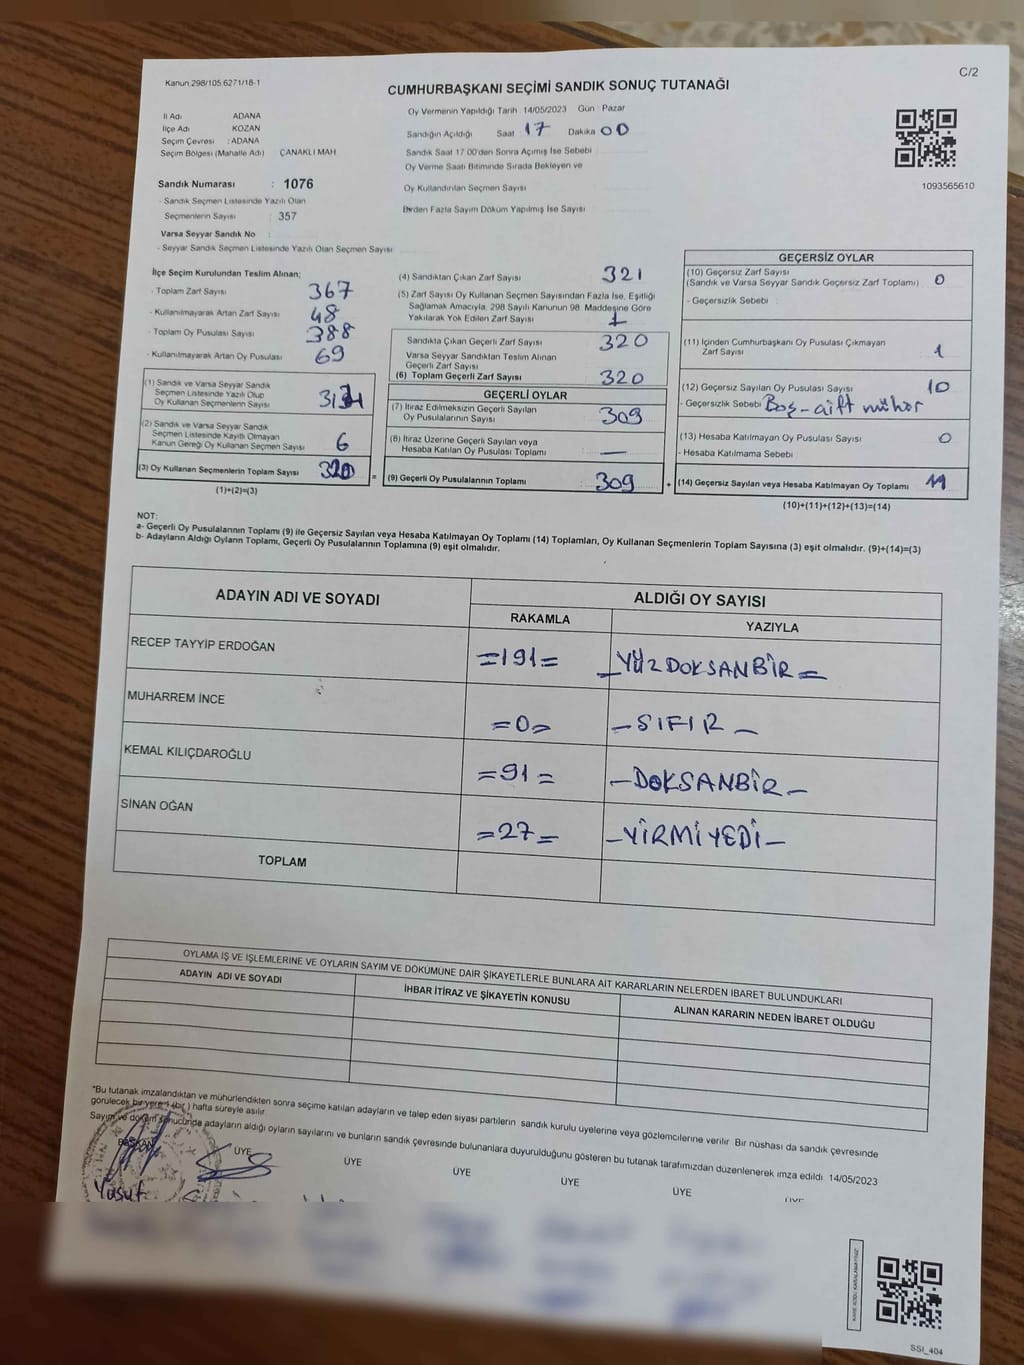 Kanun 298/105.6271/18-1
C/2
CUMHURBAŞKANI SEÇİMİ SANDIK SONUÇ TUTANAĞI
İl Adı ADANA
İlçe Adı KOZAN
Seçim Çevresi : ADANA
Seçim Bölgesi (Mahalle Adı) ÇANAKLI MAH.
Sandık Numarası : 1076
- Sandık Seçmen Listesinde Yazılı Olan
Seçmenlerin Sayısı : 357
Varsa Seyyar Sandık No :
- Seyyar Sandık Seçmen Listesinde Yazılı Olan Seçmen Sayısı
Oy Vermenin Yapıldığı Tarih : 14/05/2023 Gün : Pazar
Sandığın Açıldığı Saat 17 Dakika 00
Sandık Saat 17:00'den Sonra Açımış İse Sebebi
Oy Verme Saati Bitiminde Sırada Bekleyen ve
Oy Kullandırılan Seçmen Sayısı
Birden Fazla Sayım Döküm Yapılmış İse Sayısı
1093565610
İlçe Seçim Kurulundan Teslim Alınan;
- Toplam Zarf Sayısı 367
- Kullanılmayarak Artan Zarf Sayısı 48
- Toplam Oy Pusulası Sayısı 388
- Kullanılmayarak Artan Oy Pusulası 69
(1) Sandık ve Varsa Seyyar Sandık
Seçmen Listesinde Yazılı Olup
Oy Kullanan Seçmenlerin Sayısı
(2) Sandık ve Varsa Seyyar Sandık
Seçmen Listesinde Kayıtlı Olmayan
Kanun Gereği Oy Kullanan Seçmen Sayısı 6
(3) Oy Kullanan Seçmenlerin Toplam Sayısı 320 =
(1)+(2)=(3)
(4) Sandıktan Çıkan Zarf Sayısı 321
(5) Zarf Sayısı Oy Kullanan Seçmen Sayısından Fazla İse, Eşitliği
Sağlamak Amacıyla, 298 Sayılı Kanunun 98. Maddesine Göre
Yakılarak Yok Edilen Zarf Sayısı 1
Sandıkta Çıkan Geçerli Zarf Sayısı 320
Varsa Seyyar Sandıktan Teslim Alınan
Geçerli Zarf Sayısı
(6) Toplam Geçerli Zarf Sayısı 320
GEÇERLİ OYLAR
(7) İtiraz Edilmeksizin Geçerli Sayılan
Oy Pusulalarının Sayısı 309
(8) İtiraz Üzerine Geçerli Sayılan veya
Hesaba Katılan Oy Pusulası Toplamı —
(9) Geçerli Oy Pusulalarının Toplamı 309 +
GEÇERSİZ OYLAR
(10) Geçersiz Zarf Sayısı
(Sandık ve Varsa Seyyar Sandık Geçersiz Zarf Toplamı) 0
- Geçersizlik Sebebi :
(11) İçinden Cumhurbaşkanı Oy Pusulası Çıkmayan
Zarf Sayısı 1
(12) Geçersiz Sayılan Oy Pusulası Sayısı 10
- Geçersizlik Sebebi Boş - çift mühür
(13) Hesaba Katılmayan Oy Pusulası Sayısı 0
- Hesaba Katılmama Sebebi
(14) Geçersiz Sayılan veya Hesaba Katılmayan Oy Toplamı 11
(10)+(11)+(12)+(13)=(14)
NOT:
a- Geçerli Oy Pusulalarının Toplamı (9) ile Geçersiz Sayılan veya Hesaba Katılmayan Oy Toplamı (14) Toplamları, Oy Kullanan Seçmenlerin Toplam Sayısına (3) eşit olmalıdır. (9)+(14)=(3)
b- Adayların Aldığı Oyların Toplamı, Geçerli Oy Pusulalarının Toplamına (9) eşit olmalıdır.
ADAYIN ADI VE SOYADI ALDIĞI OY SAYISI
RAKAMLA YAZIYLA
RECEP TAYYİP ERDOĞAN =191= - YÜZDOKSANBİR =
MUHARREM İNCE =0= - SIFIR -
KEMAL KILIÇDAROĞLU =91= - DOKSANBİR -
SİNAN OĞAN =27= - YİRMİYEDİ -
TOPLAM
OYLAMA İŞ VE İŞLEMLERİNE VE OYLARIN SAYIM VE DÖKÜMÜNE DAİR ŞİKAYETLERLE BUNLARA AİT KARARLARIN NELERDEN İBARET BULUNDUKLARI
ADAYIN ADI VE SOYADI İHBAR İTİRAZ VE ŞİKAYETİN KONUSU ALINAN KARARIN NEDEN İBARET OLDUĞU
*Bu tutanak imzalandıktan ve mühürlendikten sonra seçime katılan adayların ve talep eden siyasi partilerin sandık kurulu üyelerine veya gözlemcilerine verilir. Bir nüshası da sandık çevresinde
görülecek bir yere 1 (bir) hafta süreyle asılır.
Sayım ve döküm sonucunda adayların aldığı oyların sayılarını ve bunların sandık çevresinde bulunanlara duyurulduğunu gösteren bu tutanak tarafımızdan düzenlenerek imza edildi. 14/05/2023
BAŞKAN ÜYE ÜYE ÜYE ÜYE ÜYE ÜYE
Yusuf
SSİ_404